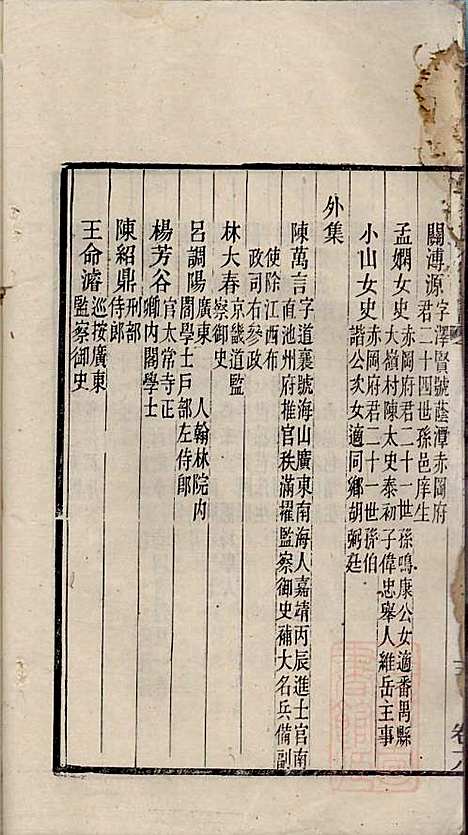 關溥源字澤賢號蔭潭赤岡府
君二十四世孫邑庠生
孟嫻女史赤岡府君二十一世孫鳴康公女適番禺縣
大嶺村陳太史泰初子偉忠舉人維岳主事
小山女史赤岡府君二十一世孫伯
諧公次女適同鄉胡弼廷
外集
陳萬言字道襄號海山廣東南海人嘉靖丙辰進士官南
直池州府推官秩滿擢監察御史補大名兵備副
使除江西布
政司右參政
林大春京畿道監
察御史
呂調陽廣東 人翰林院內
閣學士戶部左侍郎
楊芳谷官太常寺正
卿內閣學士
陳紹鼎刑部
侍郎
王命濬巡按廣東
監察御史
卷六